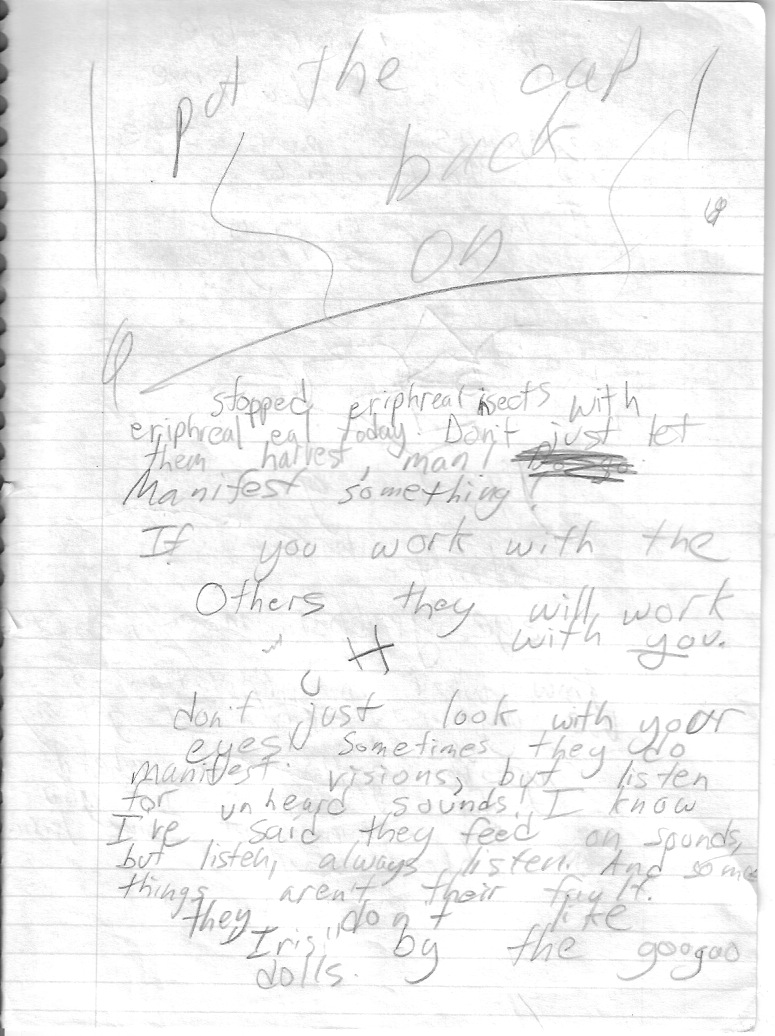 put the cap
back
on
stopped eriphreal insects with
eriphreal eal today. Don't just let
them harvest, man!
Manifest something!
If you work with the
Others they will work
with you.
don't just look with your
eyes! Sometimes they do
manifest. visions, but listen
for unheard sounds! I know
I've said they feed on sounds,
but listen, always listen. And some
things aren't their fault.
they don't like
"Iris" by the googoo
dolls.